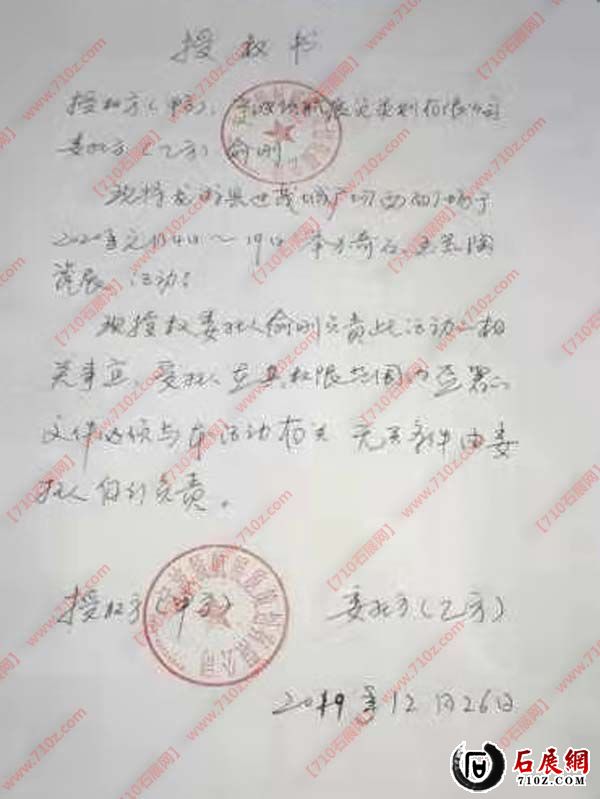 授权书
授权方(甲方): 展览策划有限公司
委托方(乙方) 俞刚
现将龙游县世贸城广场西面广场于
2020年元月4日~19日 举办奇石、玉器陶
瓷展 活动;
现授权委托人俞刚负责此活动一相
关事宜、受托人在其权限范围内签署的
文件必须与本活动有关 无关条件由委
托人自行负责。
授权方(甲方) 委托方(乙方)
2019年12月26日
【710石展网】www.710z.com
石展網
710Z.COM